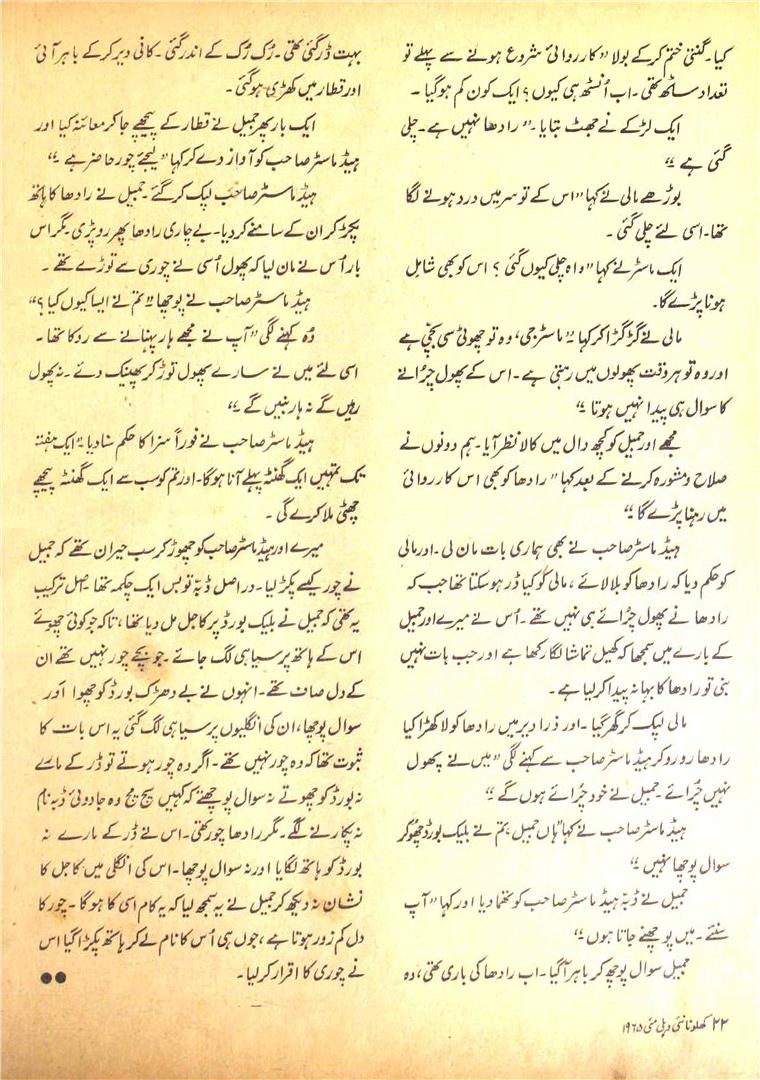 کیا۔ گنتی ختم کرکے بولا ”کارروائی شروع ہونے سے پہلے تو
تعداد ساٹھ تھی۔ اب اُنسٹھ ہی کیوں؟ ایک کون کم ہوگیا۔
ایک لڑکے نے جھٹ بتایا۔ ”رادھا نہیں ہے۔ چلی
گئی ہے“
بوڑھے مالی نے کہا ”اس کے تو سر میں درد ہونے لگا
تھا۔ اسی لئے چلی گئی۔
ایک ماسٹر نے کہا ”واہ چلی کیوں گئی؟ اس کو بھی شامل
ہونا پڑے گا۔
مالی نے گڑگڑا کر کہا ”ماسٹر جی، وہ تو چھوٹی سی بچی ہے
اور وہ تو ہر وقت پھولوں میں رہتی ہے۔ اس کے پھول چُرانے
کا سوال ہی پیدا نہیں ہوتا“
مجھے اور جمیل کو کچھ دال میں کالا نظر آیا۔ ہم دونوں نے
صلاح و مشورہ کرنے کے بعد کہا ”رادھا کو بھی اس کارروائی
میں رہنا پڑے گا“
ہیڈ ماسٹر صاحب نے بھی ہماری بات مان لی۔ اور مالی
کو حکم دیا کہ رادھا کو بلا لائے، مالی کو کیا ڈر ہوسکتا تھا جب کہ
رادھا نے پھول چُرائے ہی نہیں تھے۔ اُس نے میرے اور جمیل
کے بارے میں سمجھا کہ کھیل تماشا لگا رکھا ہے اور جب بات نہیں
بنی تو رادھا کا بہانہ پیدا کرلیا ہے۔
مالی لپک کر گھر گیا۔ اور ذرا دیر میں رادھا کو لا کھڑا کیا
رادھا رو رو کر ہیڈ ماسٹر صاحب سے کہنے لگی ”میں نے پھول
نہیں چُرائے۔ جمیل نے خود چُرائے ہوں گے“
ہیڈ ماسٹر صاحب نے کہا ”ہاں جمیل، تم نے بلیک بورڈ چھو کر
سوال پوچھا نہیں“
جمیل نے ڈبّہ ہیڈ ماسٹر صاحب کو تھما دیا اور کہا ”آپ
سنئے۔ میں پوچھنے جاتا ہوں“
جمیل سوال پوچھ کر باہر آگیا۔ اب رادھا کی باری تھی، وہ
بہت ڈر گئی تھی۔ رُک رُک کے اندر گئی۔ کافی دیر کرکے باہر آئی
اور قطار میں کھڑی ہوگئی۔
ایک بار پھر جمیل نے قطار کے پیچھے جاکر معائنہ کیا اور
ہیڈ ماسٹر صاحب کو آواز دے کر کہا ”لیجئے چور حاضر ہے“
ہیڈ ماسٹر صاحب لپک کر گئے۔ جمیل نے رادھا کا ہاتھ
پکڑ کر ان کے سامنے کردیا۔ بے چاری رادھا پھر رو پڑی۔ مگر اس
بار اُس نے مان لیا کہ پھول اُسی نے چوری سے توڑے تھے۔
ہیڈ ماسٹر صاحب نے پوچھا ”تم نے ایسا کیوں کیا؟“
وُہ کہنے لگی ”آپ نے مجھے ہار پہنانے سے روکا تھا۔
اسی لئے میں نے سارے پھول توڑ کر پھینک دئے۔ نہ پھول
رہیں گے نہ ہار بنیں گے“
ہیڈ ماسٹر صاحب نے فوراً سزا کا حکم سنا دیا ”ایک ہفتہ
تک تمہیں ایک گھنٹہ پہلے آنا ہوگا۔ اور تم کو سب سے ایک گھنٹہ پیچھے
چھٹی ملا کرے گی۔
میرے اور ہیڈ ماسٹر صاحب کو چھوڑ کر سب حیران تھے کہ جمیل
نے چور کیسے پکڑ لیا۔ دراصل ڈبّہ تو بس ایک چکمہ تھا۔ اصل ترکیب
یہ تھی کہ جمیل نے بلیک بورڈ پر کاجل مل دیا تھا، تاکہ جو کوئی چھوئے
اس کے ہاتھ پر سیاہی لگ جائے۔ جو بچے چور نہیں تھے ان
کے دل صاف تھے۔ انہوں نے بے دھڑک بورڈ کو چھوا اور
سوال پوچھا، ان کی انگلیوں پر سیاہی لگ گئی یہ اس بات کا
ثبوت تھا کہ وہ چور نہیں تھے۔ اگر وہ چور ہوتے تو ڈر کے مارے
نہ بورڈ کو چھوتے نہ سوال پوچھتے کہ کہیں سچ مچ وہ جادوئی ڈبہ نام
نہ پکارنے لگے۔ مگر رادھا چور تھی۔ اس نے ڈر کے مارے نہ
بورڈ کو ہاتھ لگایا اور نہ سوال پوچھا۔ اس کی انگلی میں کاجل کا
نشان نہ دیکھ کر جمیل نے یہ سمجھ لیا کہ یہ کام اسی کا ہوگا۔ چور کا
دل کمزور ہوتا ہے، جوں ہی اُس کا نام لے کر ہاتھ پکڑا گیا اس
نے چوری کا اقرار کرلیا۔
۲۲ کھلونا نئی دہلی مئی ۱۹۶۵